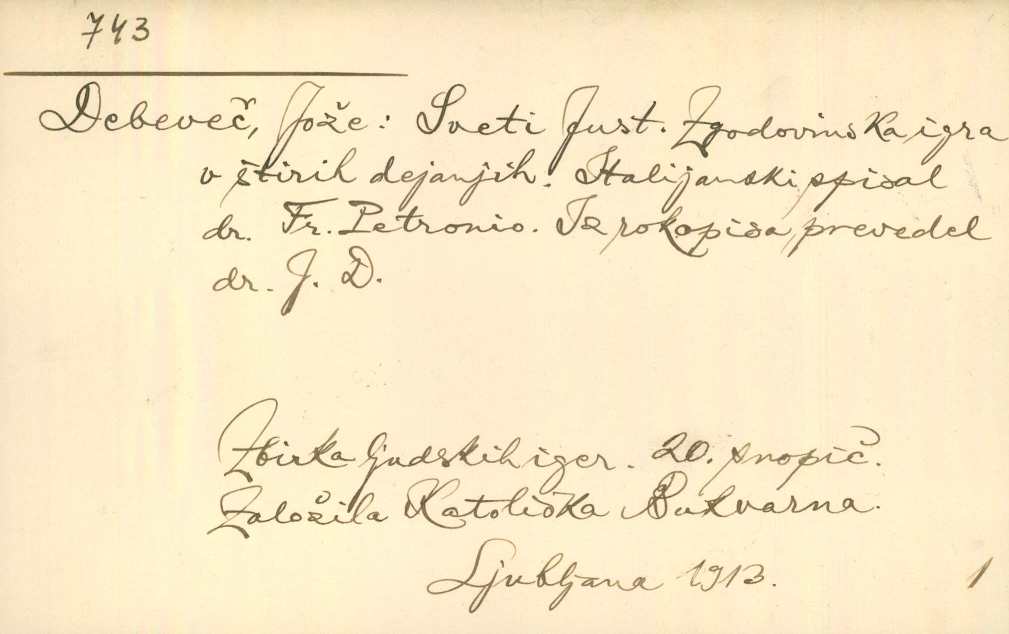 743
Debeveč, Jože: Sveti Just. Zgodovinska igra
v štirih dejanjih. Italijanski spisal
dr. Fr. Petronio. Iz rokopisa prevedel
dr. J. D.
Zbirka ljudskih iger. 20. snopič.
Založila Katoliška Bukvarna.
Ljubljana 1913.
1